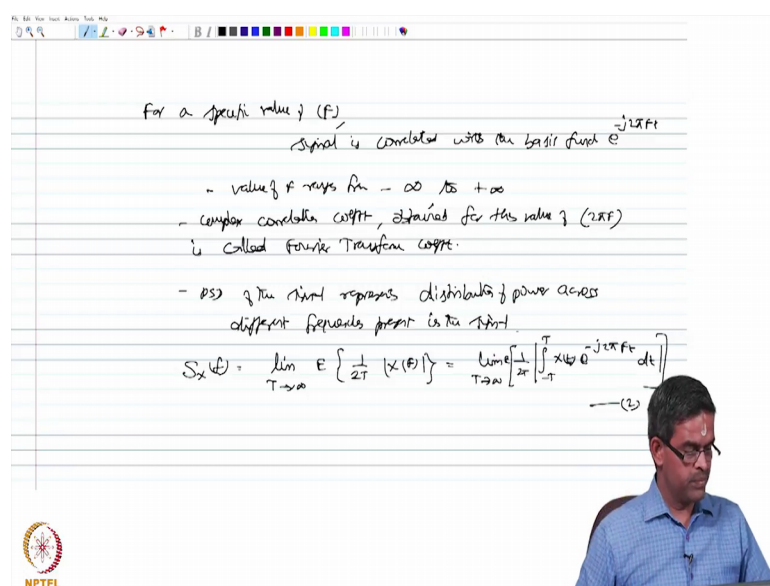 File Edit View Insert Actions Tools Help
B I
For a specific value of (F)
signal is correlated with the basis funcⁿ e^{-j2πFt}
- value of F ranges from - ∞ to + ∞
- complex correlation coefft, obtained for this value of (2πF)
is called Fourier Transform coefft.
- PSD of the signal represents distribution of power across
different frequencies present is the signal.
Sₓ(f) = lim_{T→∞} E { 1/2T |X(F)| } = lim_{T→∞} E [ 1/2T | ∫_{-T}^{T} x(t) e^{-j2πFt} dt | ]
—(2)
NPTEL